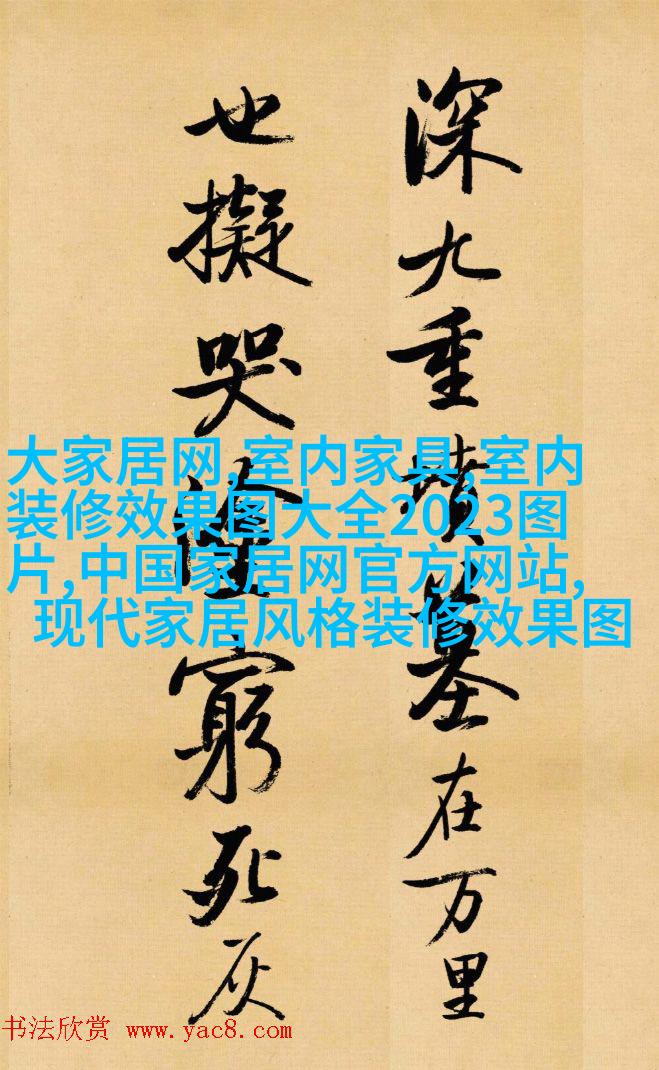 深九重墳墓在万里
也擬哭塗窮死灰
大家居网,室内家具,室内
装修效果图大全2023图
片,中国家居网官方网站,
现代家居风格装修效果图
书法欣赏 www.yac8.com